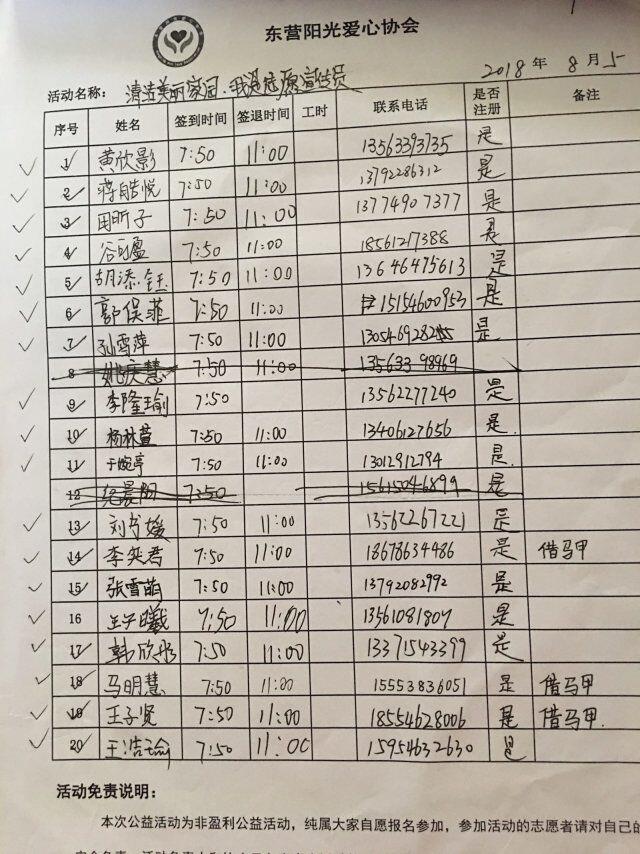 东营阳光爱心协会
2018 年 8 月 5
活动名称： 清洁美丽家园、我是志愿宣传员
序号 姓名 签到时间 签退时间 工时 联系电话 是否注册 备注
1 黄欣影 7:50 11:00 13563393735 是
2 蒋皓悦 7:50 11:00 13792286312 是
3 田昕子 7:50 11:00 13774907377 是
4 谷盈 7:50 11:00 18561217388 是
5 胡添钰 7:50 11:00 13646475613 是
6 郭俣菲 7:50 11:00 15154600953 是
7 孙雪萍 7:50 11:00 是
8 姚庆慧 7:50 11:00 13563398969
9 李隆瑜 7:50 13562277240 是
10 杨林萱 7:50 11:00 13406127656 是
11 于婉亭 7:50 11:00 13012912794 是
12 7:50 15615046899 是
13 刘书媛 7:50 11:00 13562267221 是
14 李奕君 7:50 11:00 18678634486 是 借马甲
15 张雪萌 7:50 11:00 13792082992 是
16 王子曦 7:50 11:00 13561091807 是
17 韩欣彤 7:50 11:00 13371543399 是
18 马明慧 7:50 11:00 15553836051 是 借马甲
19 王子贤 7:50 11:00 18554628006 是 借马甲
20 王浩瑜 7:50 11:00 15954632630 是
活动免责说明：
本次公益活动为非盈利公益活动，纯属大家自愿报名参加，参加活动的志愿者请对自己的